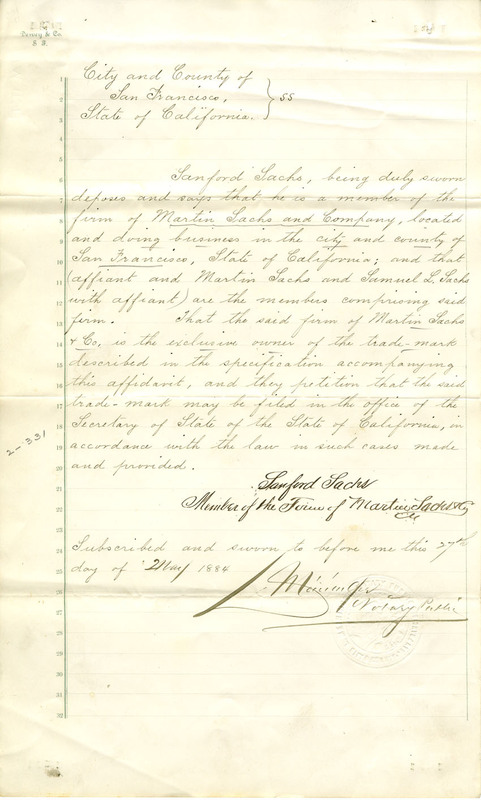 S. B.
City and County of
San Francisco, } SS
State of California.
Sanford Sachs, being duly sworn
deposes and says that he is a member of the
firm of Martin Sachs and Company, located
and doing business in the city and county of
San Francisco, State of California; and that
(affiant and Martin Sachs and Samuel L. Sachs
with affiant) are the members compricing said
firm. That the said firm of Martin Sachs
& Co. is the exclusive owner of the trade-mark
described in the specification accompanying
this affidavit, and they petition that the said
trade-mark may be filed in the office of the
Secretary of State of the State of California, in
accordance with the law in such cases made
and provided.
2-331
Sanford Sachs
Member of the Firm of Martin Sachs & Co
Subscribed and sworn to before me this 27th
day of May 1884
Notary Public